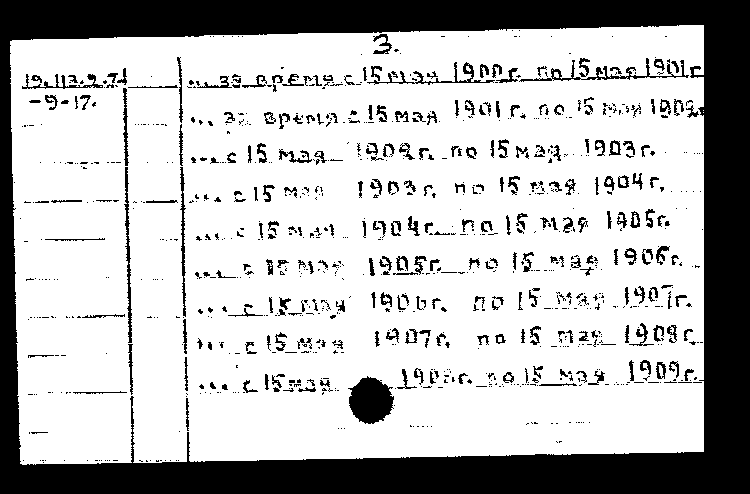 3.
19. 113. 9. 71 ... за время с 15 мая 1900г. по 15 мая 1901г
-9-17.
... за время с 15 мая 1901г. по 15 мая 1902г
... с 15 мая 1902г. по 15 мая 1903г.
... с 15 мая 1903г. по 15 мая 1904г.
... с 15 мая 1904г. по 15 мая 1905г.
... с 15 мая 1905г. по 15 мая 1906г.
... с 15 мая 1906г. по 15 мая 1907г.
... с 15 мая 1907г. по 15 мая 1908г
... с 15 мая 1908г. по 15 мая 1909г.